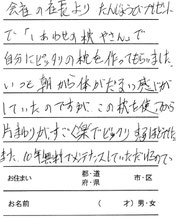 会社の社長より たんじょうびプレゼント
で「しあわせの枕やさん」で
自分にピッタリの枕を作ってもらいました。
いつも朝から体がだるい感じが
していたのですが この枕を使ってから
片まりが、すごく楽でビックリするほうです
また、10年無料でメンテナンスしていただけるので
お住まい 都・道 府・県 市・区
お名前 ( 才) 男・女